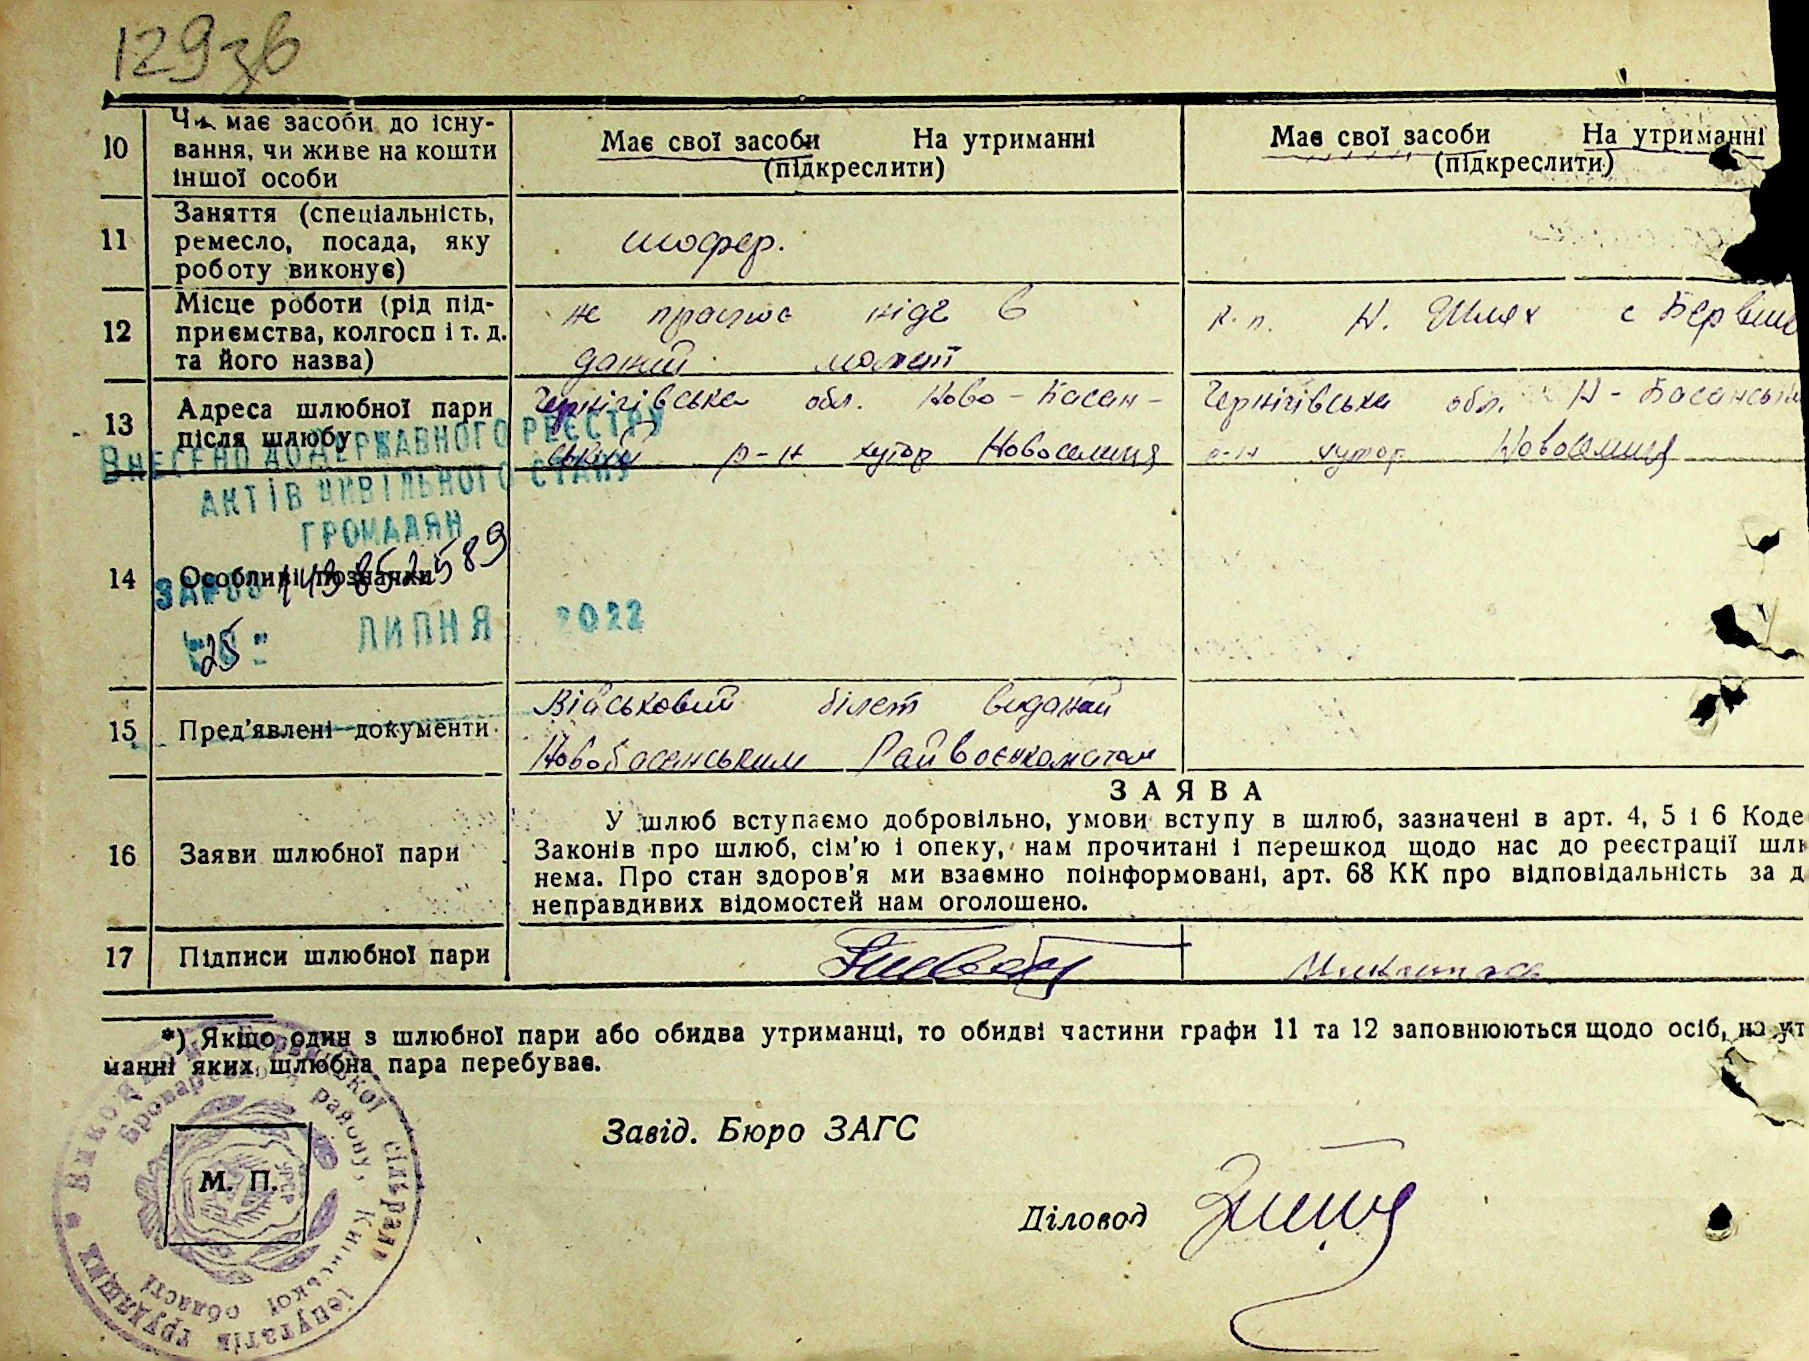 129зв
10
Чи має засоби до існу-
вання, чи живе на кошти
іншої особи
Має свої засоби На утриманні
(підкреслити)
Має свої засоби На утриманні
(підкреслити)
11
Заняття (спеціальність,
ремесло, посада, яку
роботу виконує)
шофер.
12
Місце роботи (рід під-
приємства, колгосп і т. д.
та його назва)
не працює ніде в
даний момент
к-п. Н. Шлях с
13
Адреса шлюбної пари
після шлюбу
Чернігівська обл. Ново-Басан-
ський р-н хутор Новоселиця
Чернігівська обл. Н-Басанський
р-н хутор Новоселиця
ВНЕСЕНО ДО ДЕРЖАВНОГО РЕЄСТРУ
АКТІВ ЦИВІЛЬНОГО СТАНУ
ГРОМАДЯН
14
Особливі позначки
ЗА №00
25 ЛИПНЯ 2022
15
Пред'явлені документи
Військовий білет виданий
Новобасанським Райвоєнкоматом
16
Заяви шлюбної пари
ЗАЯВА
У шлюб вступаємо добровільно, умови вступу в шлюб, зазначені в арт. 4, 5 і 6 Коде
Законів про шлюб, сім'ю і опеку, нам прочитані і перешкод щодо нас до реєстрації шлю
нема. Про стан здоров'я ми взаємно поінформовані, арт. 68 КК про відповідальність за д
неправдивих відомостей нам оголошено.
17
Підписи шлюбної пари
*) Якщо один з шлюбної пари або обидва утриманці, то обидві частини графи 11 та 12 заповнюються щодо осіб, на ут
манні яких шлюбна пара перебуває.
Завід. Бюро ЗАГС
М. П.
Діловод
сільради депутатів трудящих
Броварського району, Київської області
УРСР